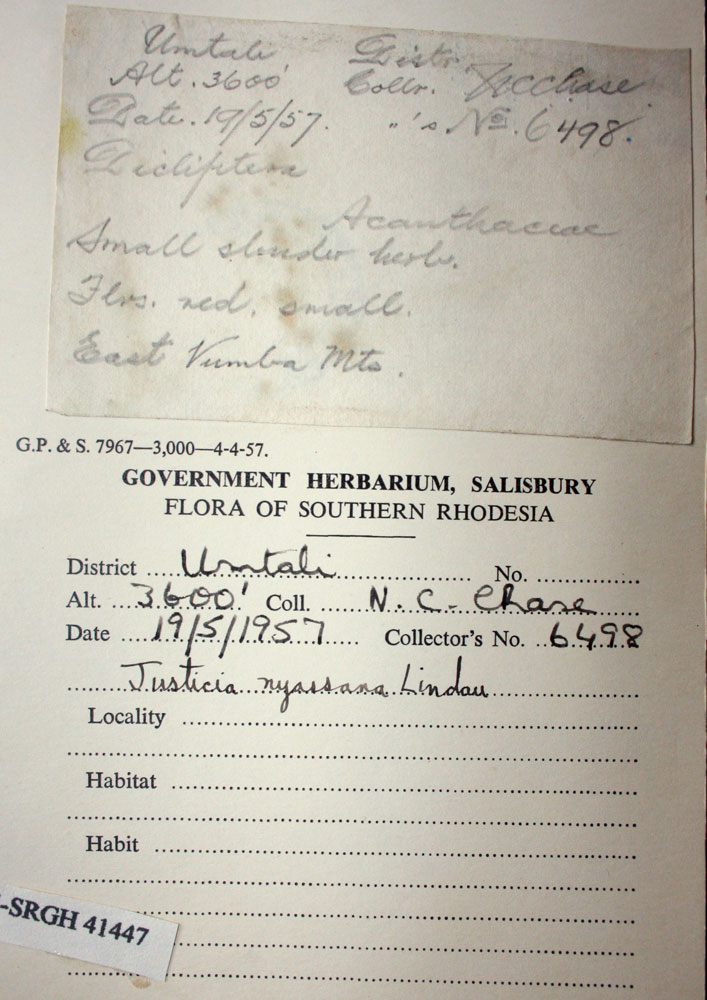 Umtali Distr.
Alt. 3600' Collr. NCChase
Date. 19/5/57. " 's No. 6498.
Dicliptera
Acanthaceae
Small slender herb.
Flrs. red, small.
East Vumba Mts.
G.P. & S. 7967—3,000—4-4-57.
GOVERNMENT HERBARIUM, SALISBURY
FLORA OF SOUTHERN RHODESIA
District Umtali No.
Alt. 3600' Coll. N. C. Chase
Date 19/5/1957 Collector's No. 6498
Justicia nyassana Lindau
Locality
Habitat
Habit
-SRGH 41447